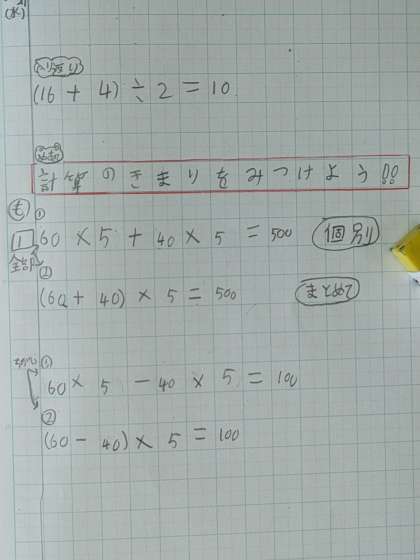 (水)
(16 + 4) ÷ 2 = 10
めあて
計算のきまりをみつけよう!!
も ①
1 60 × 5 + 40 × 5 = 500 個別
全部 ②
(60 + 40) × 5 = 500 まとめて
ちがい ①
60 × 5 - 40 × 5 = 100
②
(60 - 40) × 5 = 100